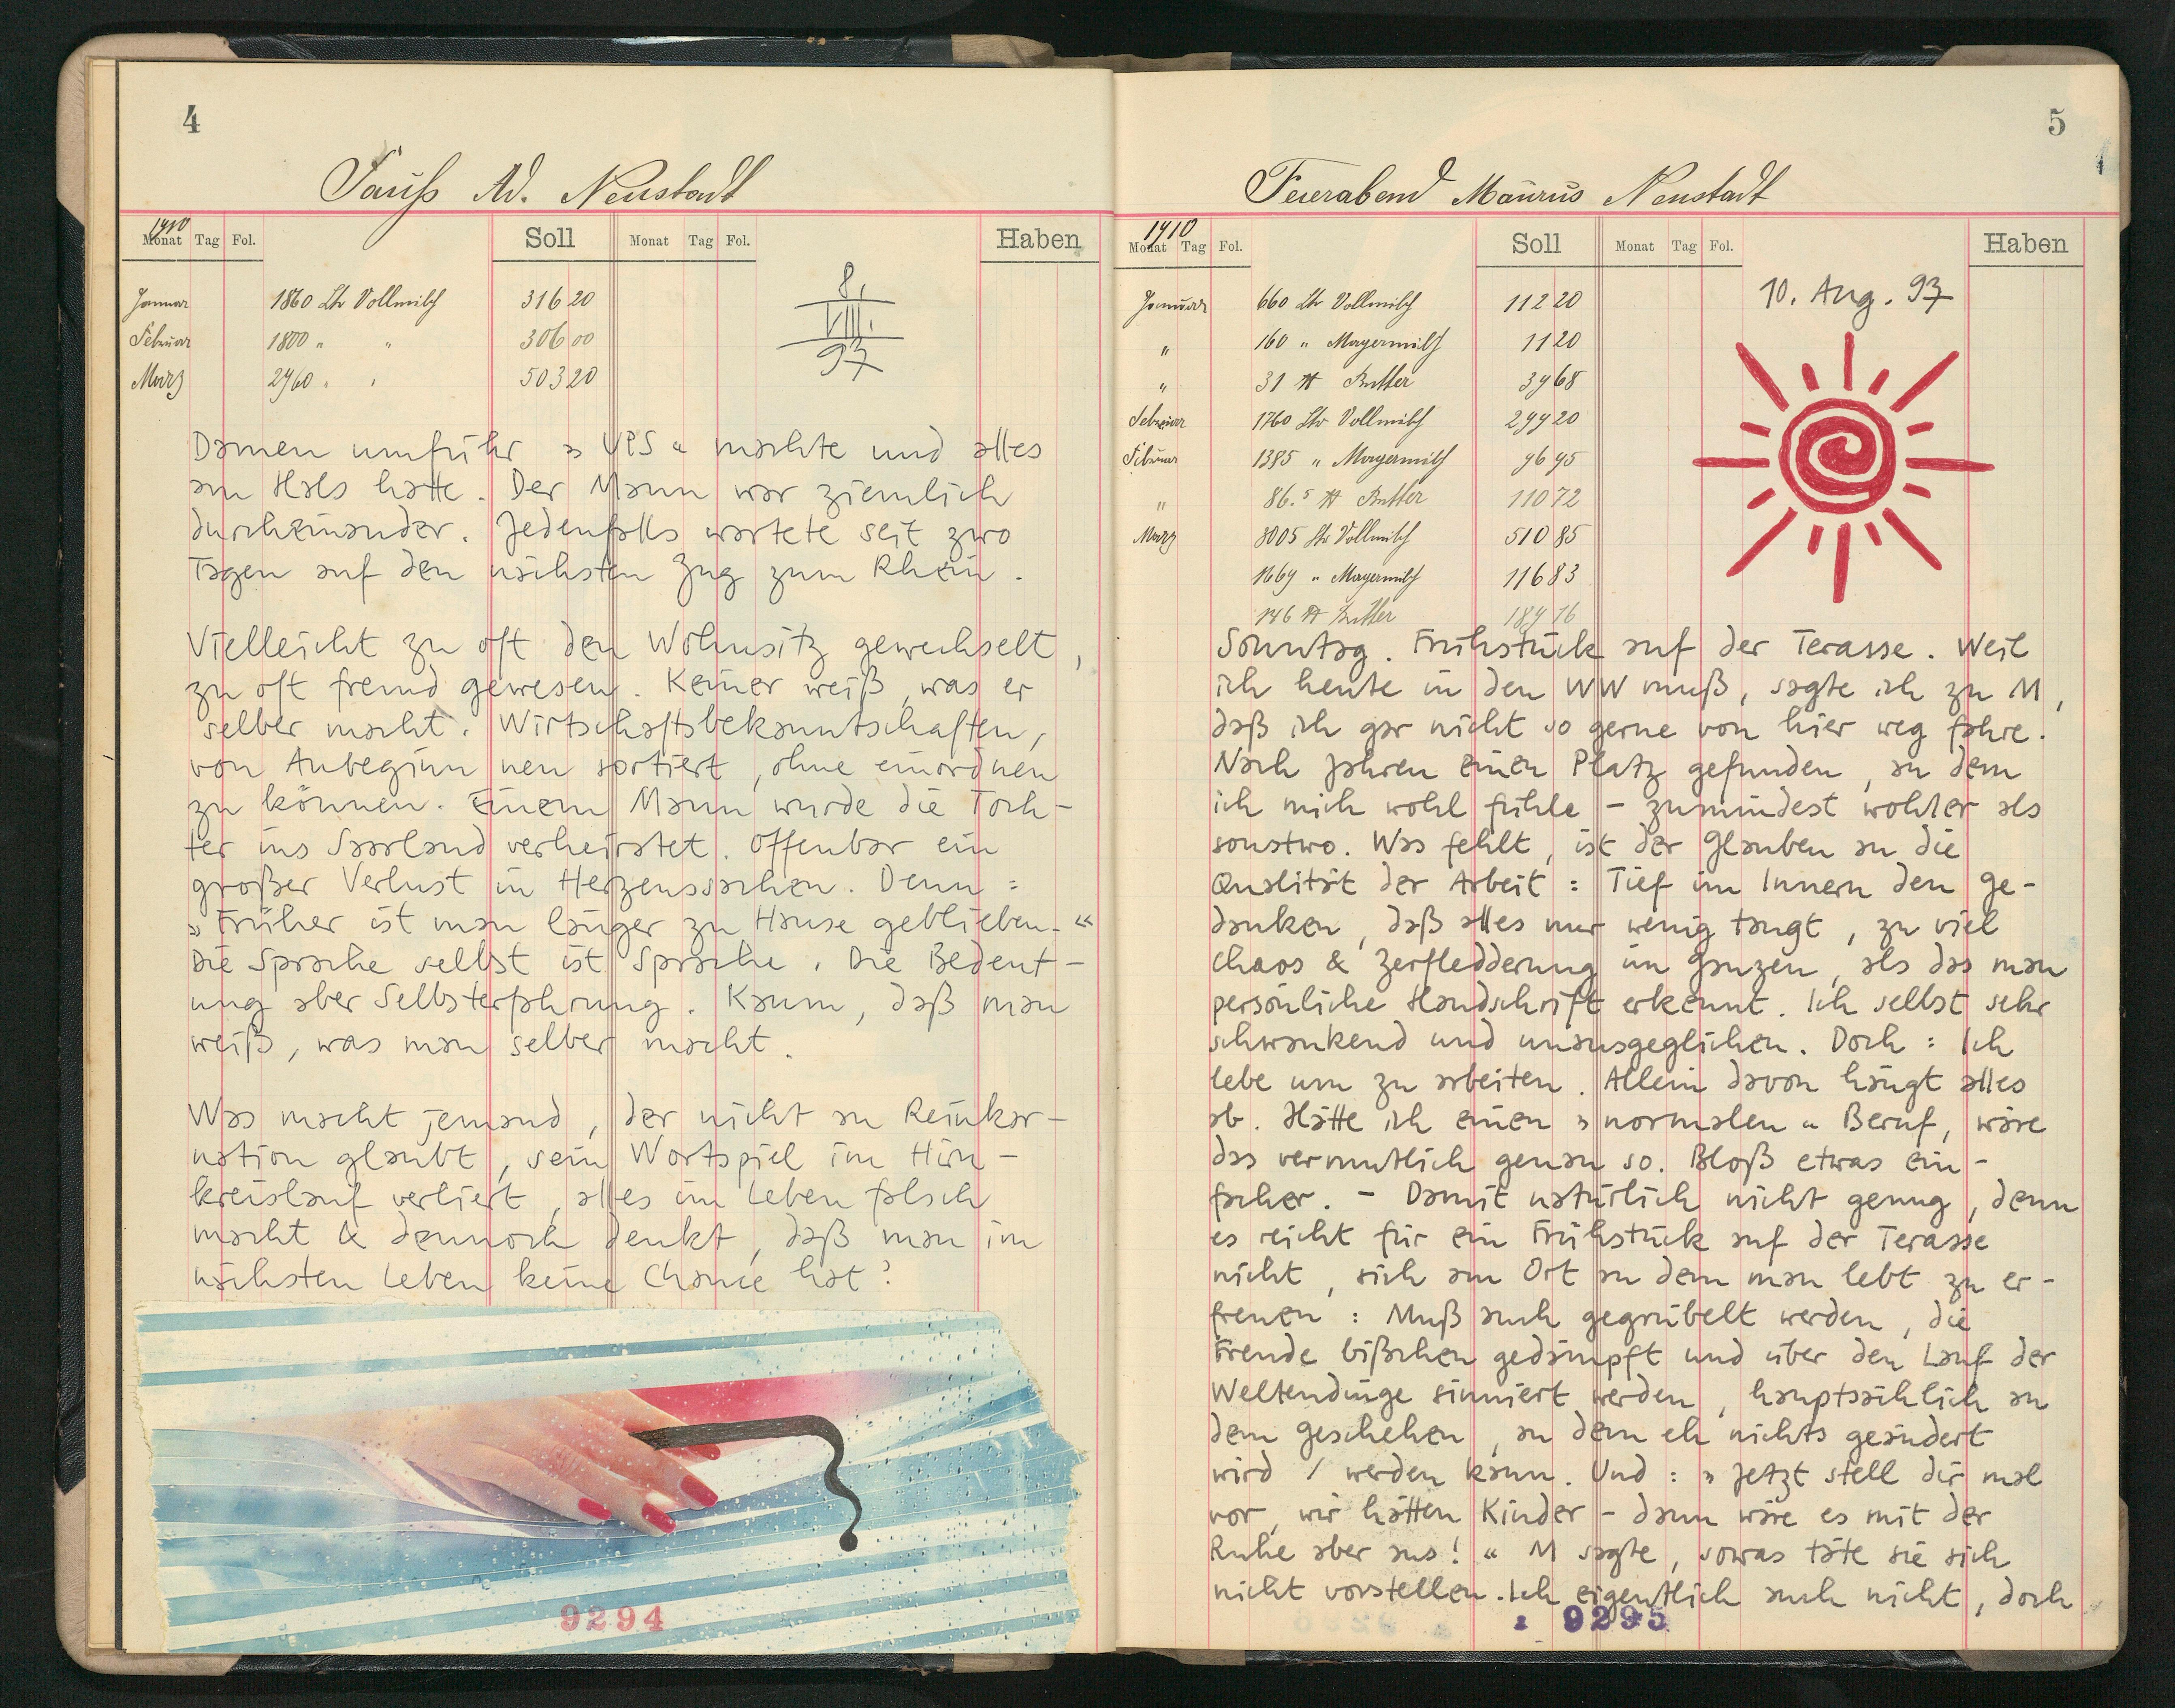 4
Ad. Neustadt
1910
Monat Tag Fol. Soll Monat Tag Fol. Haben
Januar 1860 Ltr Vollmilch 316 20
Februar 1800 " " 306 00
März 2960 " " 503 20
8.
VIII.
97
Damen umfuhr „UPS“ machte und alles
am Hals hatte. Der Mann war ziemlich
durcheinander. Jedenfalls wartete seit zwo
Tagen auf den nächsten Zug zum Rhein.
Vielleicht zu oft den Wohnsitz gewechselt,
zu oft fremd gewesen. Keiner weiß, was er
selber macht. Wirtschaftsbekanntschaften,
von Anbeginn neu sortiert, ohne einordnen
zu können. Einem Mann wurde die Toch-
ter ins Saarland verheiratet. Offenbar ein
großer Verlust in Herzenssachen. Denn:
„Früher ist man länger zu Hause geblieben.“
Die Sprache selbst ist Sprache. Die Bedeut-
ung aber Selbsterfahrung. Kaum, daß man
weiß, was man selber macht.
Was macht jemand, der nicht an Reinkar-
nation glaubt, sein Wortspiel im Hirn-
kreislauf verliert, alles im Leben falsch
macht & dennoch denkt, daß man im
nächsten Leben keine Chance hat?
9294
5
Feierabend Maurus Neustadt
1910
Monat Tag Fol. Soll Monat Tag Fol. Haben
10. Aug. 97
Januar 660 Ltr Vollmilch 112 20
" 160 " Magermilch 11 20
" 31 ℔ Butter 39 68
Februar 1760 Ltr Vollmilch 299 20
Februar 1385 " Magermilch 96 95
" 86.5 ℔ Butter 110 72
März 3005 Ltr Vollmilch 510 85
1669 " Magermilch 116 83
146 ℔ Butter
Sonntag. Frühstück auf der Terasse. Weil
ich heute in den WW muß, sagte ich zu M,
daß ich gar nicht so gerne von hier weg fahre.
Nach Jahren einen Platz gefunden, an dem
ich mich wohl fühle – zumindest wohler als
sonstwo. Was fehlt, ist der Glauben an die
Qualität der Arbeit: Tief im Innern den Ge-
danken, daß alles nur wenig taugt, zu viel
Chaos & Zerfledderung im Ganzen, als das man
persönliche Handschrift erkennt. Ich selbst sehr
schwankend und unausgeglichen. Doch: Ich
lebe um zu arbeiten. Allein davon hängt alles
ab. Hätte ich einen „normalen“ Beruf, wäre
das vermutlich genau so. Bloß etwas ein-
facher. – Damit natürlich nicht genug, denn
es reicht für ein Frühstück auf der Terasse
nicht, sich am Ort an dem man lebt zu er-
freuen: Muß auch gegrübelt werden, die
Freude bißchen gedämpft und über den Lauf der
Weltendinge sinniert werden, hauptsächlich an
dem Geschehen, an dem eh nichts geändert
wird / werden kann. Und: „Jetzt stell dir mal
vor, wir hätten Kinder – dann wäre es mit der
Ruhe aber aus!“ M sagte, sowas täte sie sich
nicht vorstellen. Ich eigentlich auch nicht, doch
9295